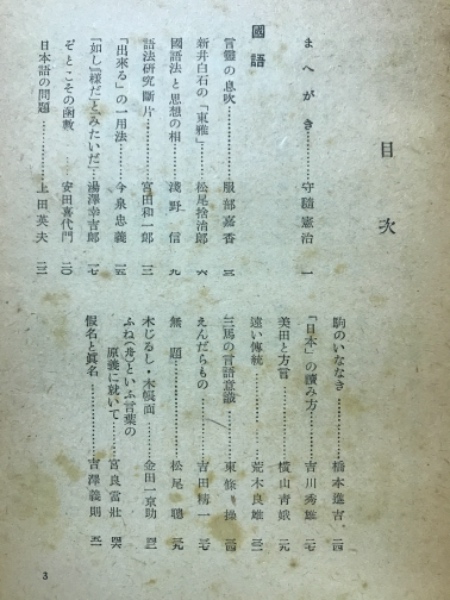 目次
まへがき…………守隨憲治 一
國語
言靈の息吹…………服部嘉香 三
新井白石の「東雅」…………松尾捨治郎 六
國語法と思想の相…………淺野信 九
語法研究斷片…………宮田和一郎 一三
「出來る」の一用法…………今泉忠義 一五
「如し」「樣だ」と「みたいだ」…………湯澤幸吉郎 一七
ぞとこその函數…………安田喜代門 二〇
日本語の問題…………上田英夫 二二
駒のいななき…………橋本進吉 二四
「日本」の讀み方…………吉川秀雄 二七
美田と方言…………横山青娥 二九
遠い傳統…………荒木良雄 三二
三馬の言語意識…………東條操 三四
えんだらもの…………吉田精一 三七
無題…………松尾聰 三九
木じるし・木帳面…………金田一京助 四三
ふね(舟)といふ言葉の
原義に就いて…………宮良當壯 四六
假名と眞名…………吉澤義則 五一
3